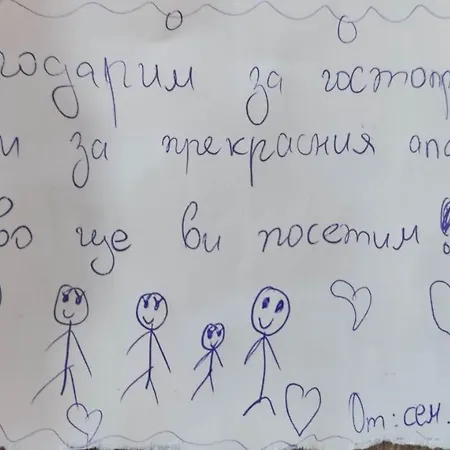 годарим за гостопр
и за прекрасния апа
во ще ви посетим!
От: сем.